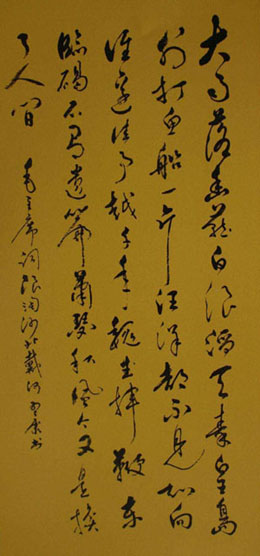 大雨落幽燕白浪滔天秦皇島
外打鱼船一片汪洋都不见知向
谁边往事越千年魏武挥鞭东
临碣石有遗篇萧瑟秋风今又是换
了人间
毛主席词浪淘沙北戴河 书